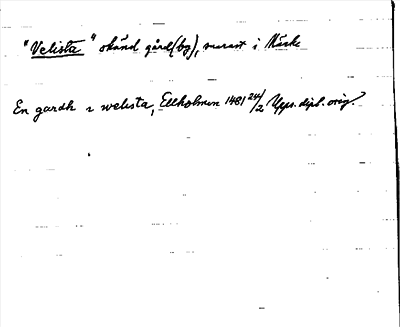 "Velista" okänd gård (by), snarast i Närke
En gardh i welista, Ellholmen 1481 24/2 Upps. dipl. orig.